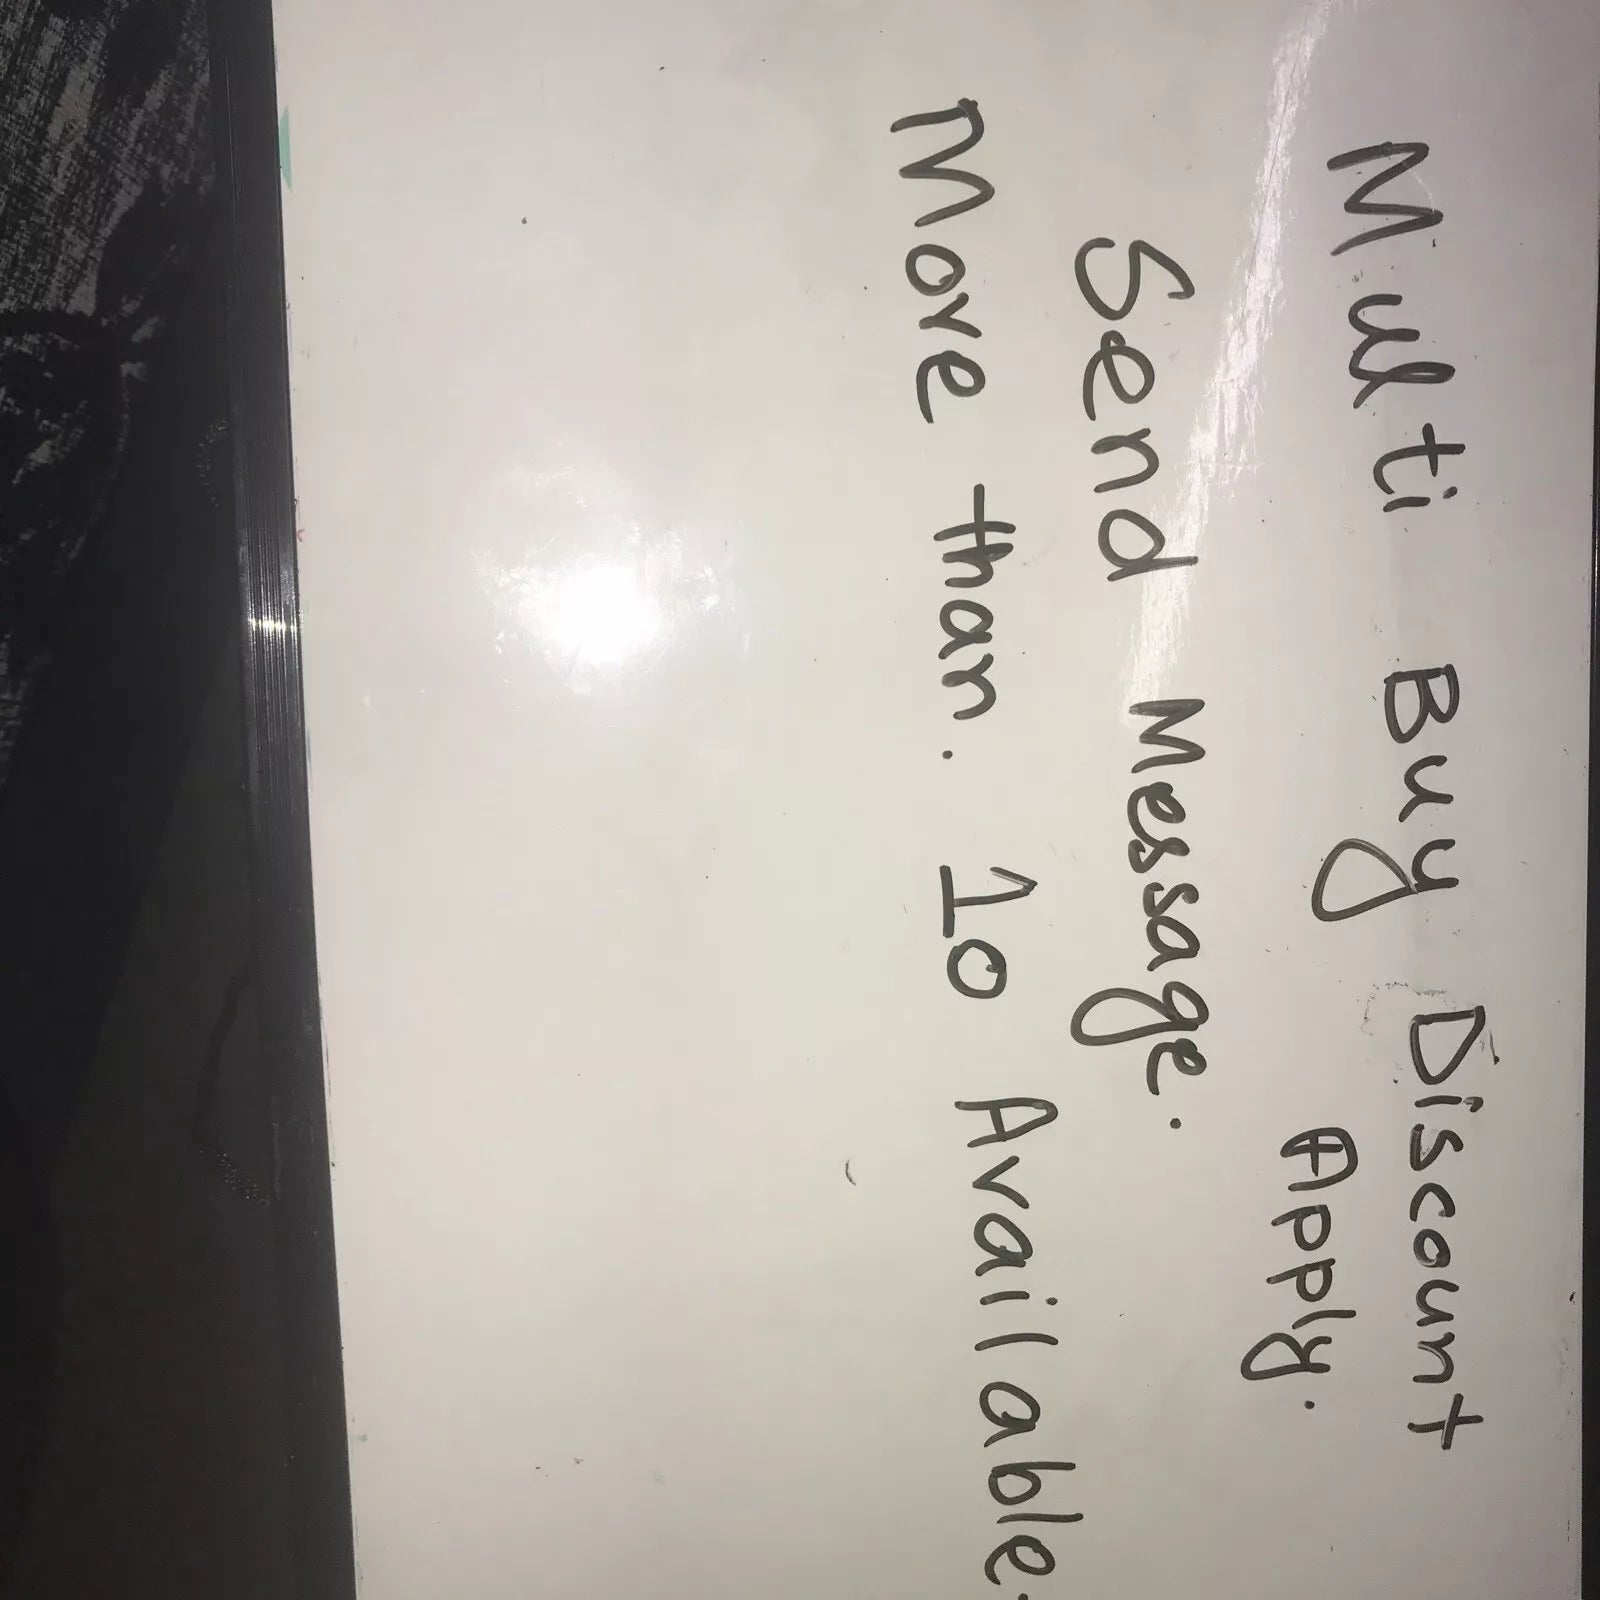 Multi Buy Discount
Apply.
Send Message.
More than. 10 Available.